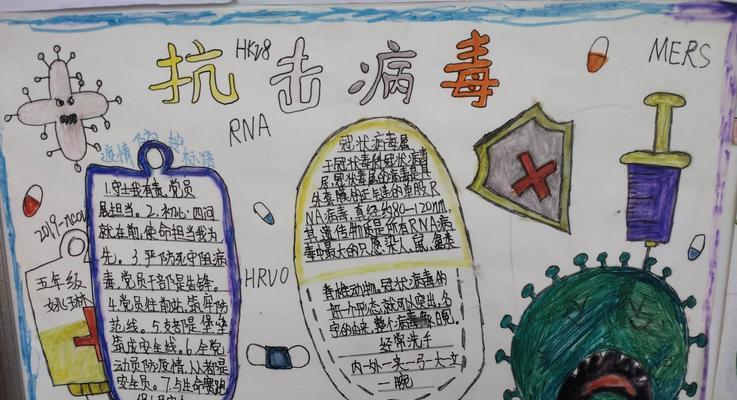 抗击病毒
HKU8
MERS
RNA
疫情防护
标语
2019-nCoV
五年级
HRV0
1.守土我有责,党员
展担当。2.初心四问
就在前,使命担当我为
先。3.严防死守阻病
毒,党员干部是先锋。
4.党员住前站,筑牢防
范线。5.支部是堡垒
筑成安全线。6.全党
动员防疫情,人都是
安全员。7.与生命赛跑
冠状病毒属
于冠状毒科冠状病毒
属,冠状毒属的病毒是具
外套膜的正链单股R
NA病毒,直径约80-120nm,
其遗传物质是所有RNA病
毒中最大的,只感染人、鼠、
脊椎动物,冠状病毒的
一个形态,就可以突出,名
字的由来,整个病毒像日冕,
经常洗手
内一外一夹一弓一大一立
一腕